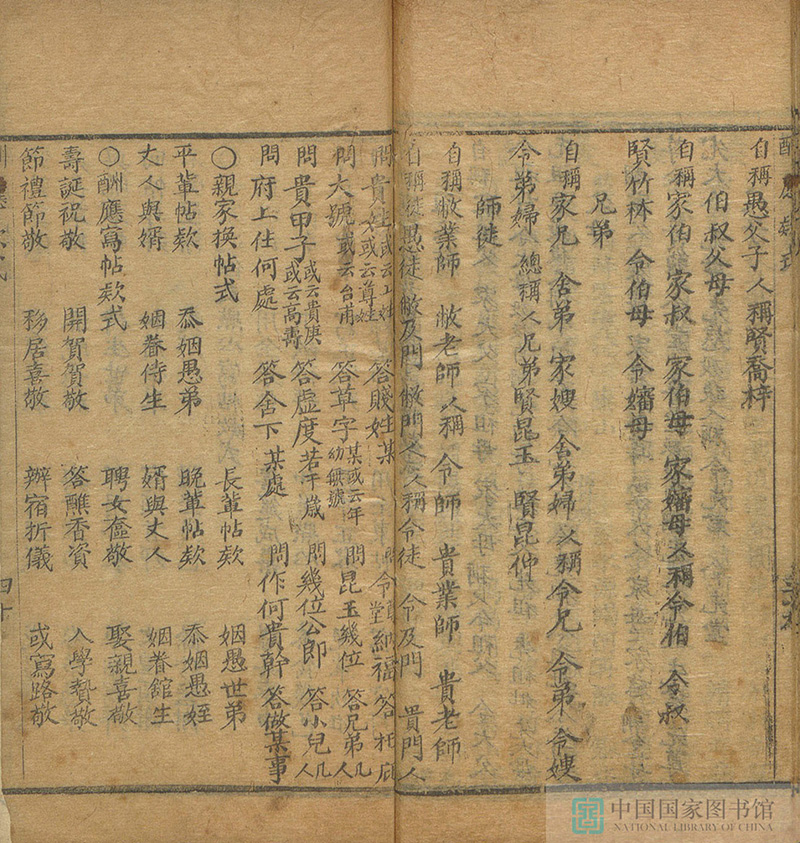 酬應款式
自稱愚父子 人稱賢喬梓
伯叔父母
自稱家伯 家叔 家伯母 家嬸母 人稱令伯 令叔
賢竹林 令伯母 令嬸母
兄弟
自稱家兄 舍弟 家嫂 舍弟婦 人稱令兄 令弟 令嫂
令弟婦 總稱人兄弟賢昆玉 賢昆仲
師徒
自稱敝業師 敝老師 人稱令師 貴業師 貴老師
自稱徒愚徒 敝及門 敝門 人稱令徒 令及門 貴門人
問貴姓 或云上姓 又或云尊姓 答賤姓某 令堂納福 答托庇
問大號 或云台甫 答草字某 或云年幼無號 問昆玉幾位 答兄弟几人
問貴甲子 或云貴庚 或云高壽 答虛度若干歲 問幾位公郎 答小兒几人
問府上住何處 答舍下某處 問作何貴幹 答做某事
○親家換帖式 長輩帖款 姻愚世弟
平輩帖款 忝姻愚弟 晚輩帖款 忝姻愚姪
丈人與婿 姻眷侍生 婿與丈人 姻眷館生
○酬應寫帖款式 聘女奩敬 娶親喜敬
壽誕祝敬 開賀賀敬 答醮香資 入學贄敬
節禮節敬 移居喜敬 辦宿折儀 或寫路敬
四十
中国国家图书馆
NATIONAL LIBRARY OF CHINA